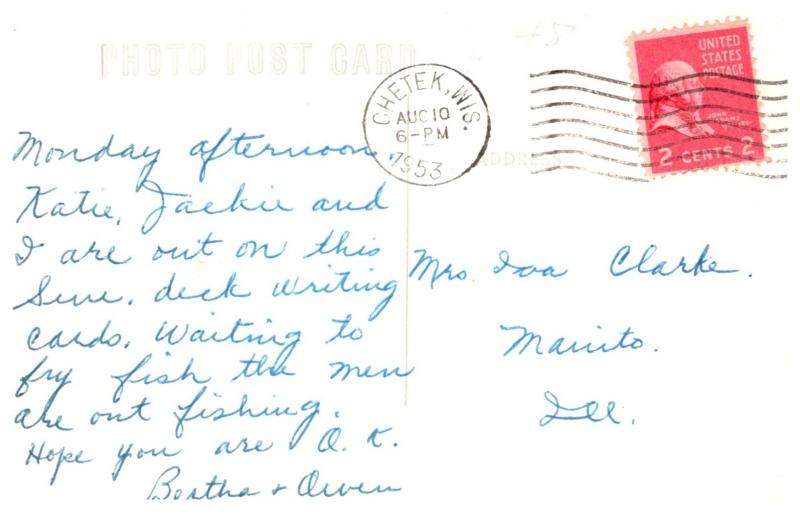 45
PHOTO POST CARD
CHETEK, WIS.
AUG 10
6-PM
1953
UNITED
STATES
POSTAGE
JOHN
ADAMS
2 CENTS 2
ADDRESS
Monday afternoon,
Katie, Jackie and
I are out on this
Sune. deck writing
cards. Waiting to
fry fish the men
are out fishing.
Hope you are O.K.
Bertha + Owen
Mrs. Iva Clarke.
Manito.
Ill.